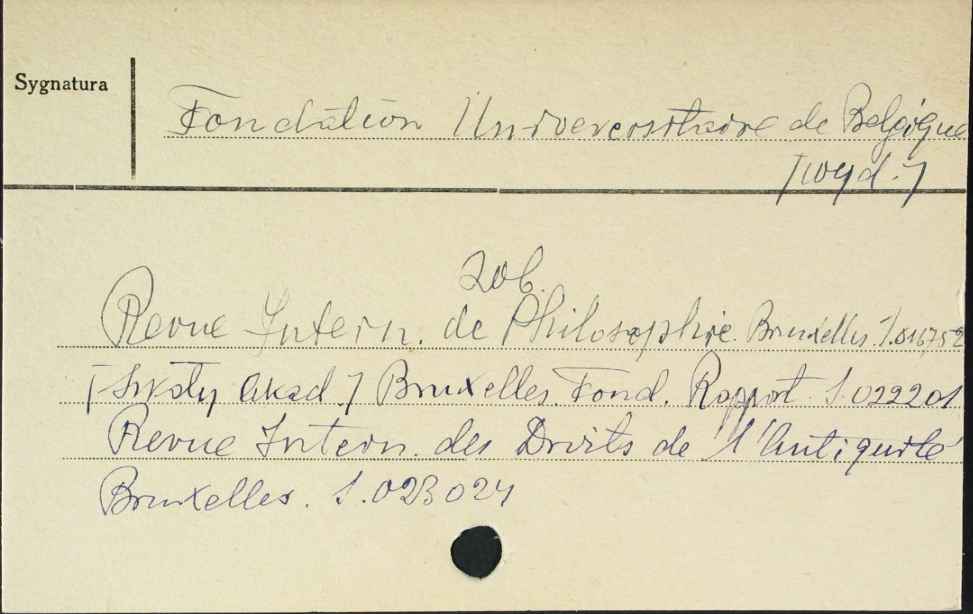 Sygnatura
Fondation Universitaire de Belgique
[wyd.]
Zob.
Revue Intern. de Philosophie. Bruxelles. S.016752
[Inst. akad.] Bruxelles. Fond. Rapport S.022201
Revue Intern. des Droits de l'Antiquité
Bruxelles. S.023024